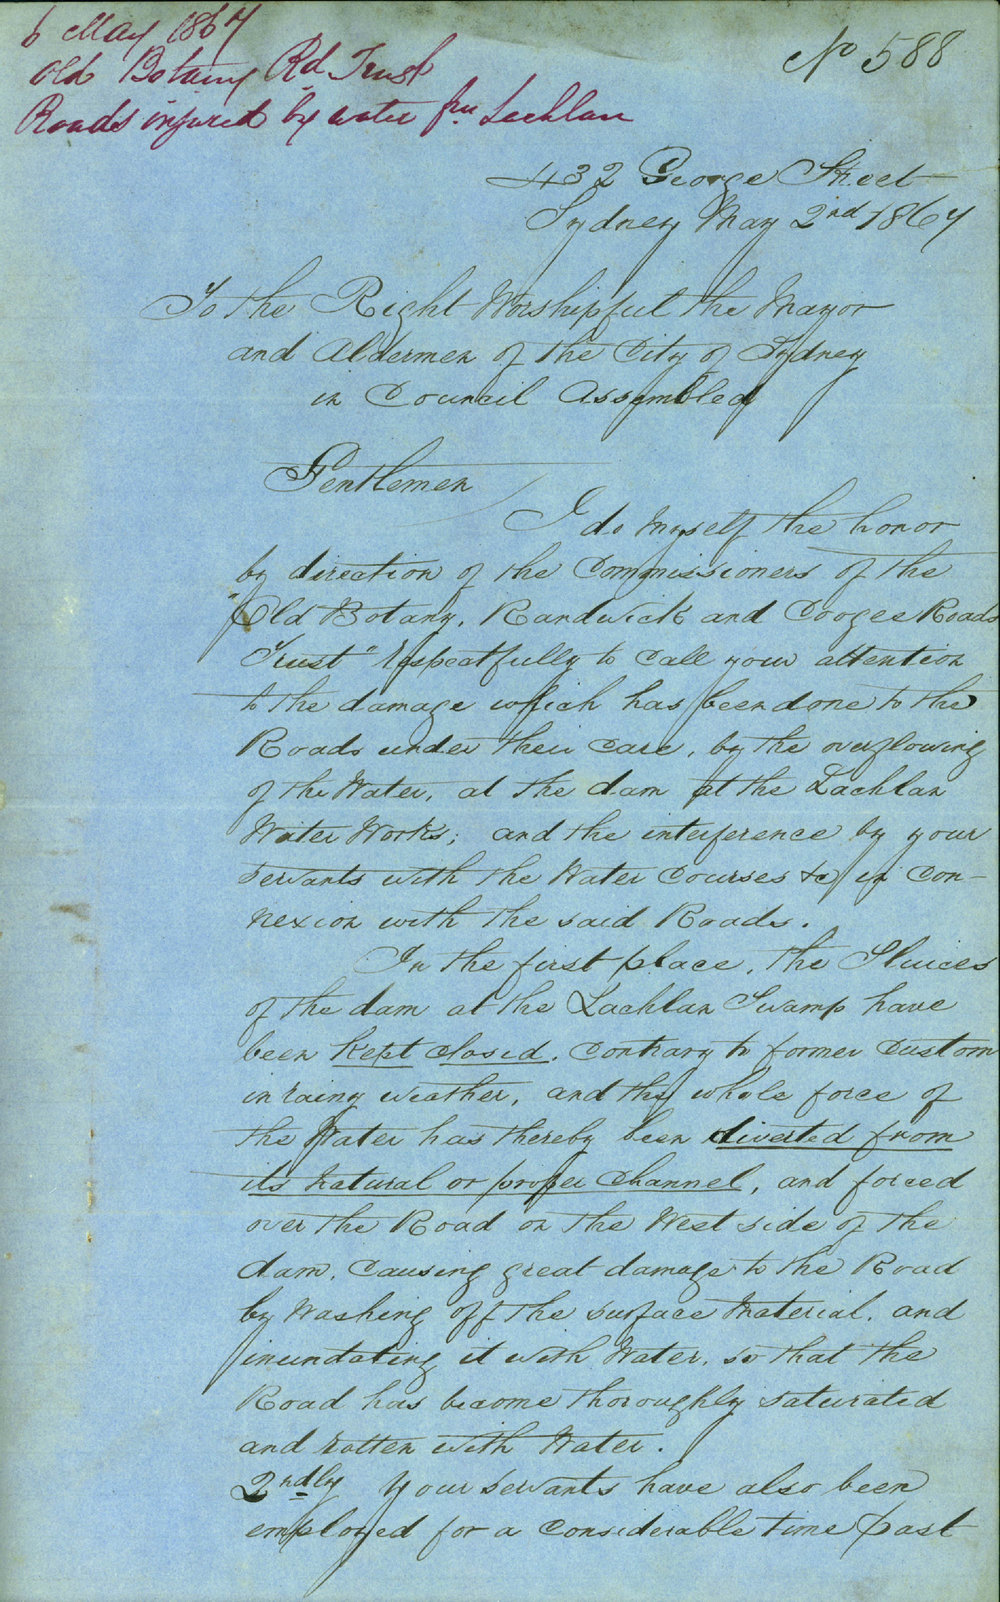 6 May 1867
Old Botany Rd Trust
Roads injured by water fm Lachlan
No 588
432 George Street
Sydney May 2nd 1867
To the Right Worshipful the Mayor
and Aldermen of the City of Sydney
in Council Assembled
Gentlemen
I do Myself the honor
by direction of the Commissioners of the
"Old Botany, Randwick and Coogee Roads
Trust" respectfully to call your attention
to the damage which has been done to the
Roads under their care, by the overflowing
of the Water, at the dam at the Lachlan
Water Works; and the interference by your
servants with the Water Courses &c in Con-
nexion with the said Roads.
In the first place, the Sluices
of the dam at the Lachlan Swamp have
been kept closed, contrary to former Custom
in rainy weather, and the whole force of
the Water has thereby been diverted from
its natural or proper Channel, and forced
over the Road on the West side of the
dam, causing great damage to the Road
by Washing off the surface Material, and
inundating it with Water, so that the
Road has become thoroughly saturated
and rotten with Water.
2ndly Your servants have also been
employed for a considerable time past